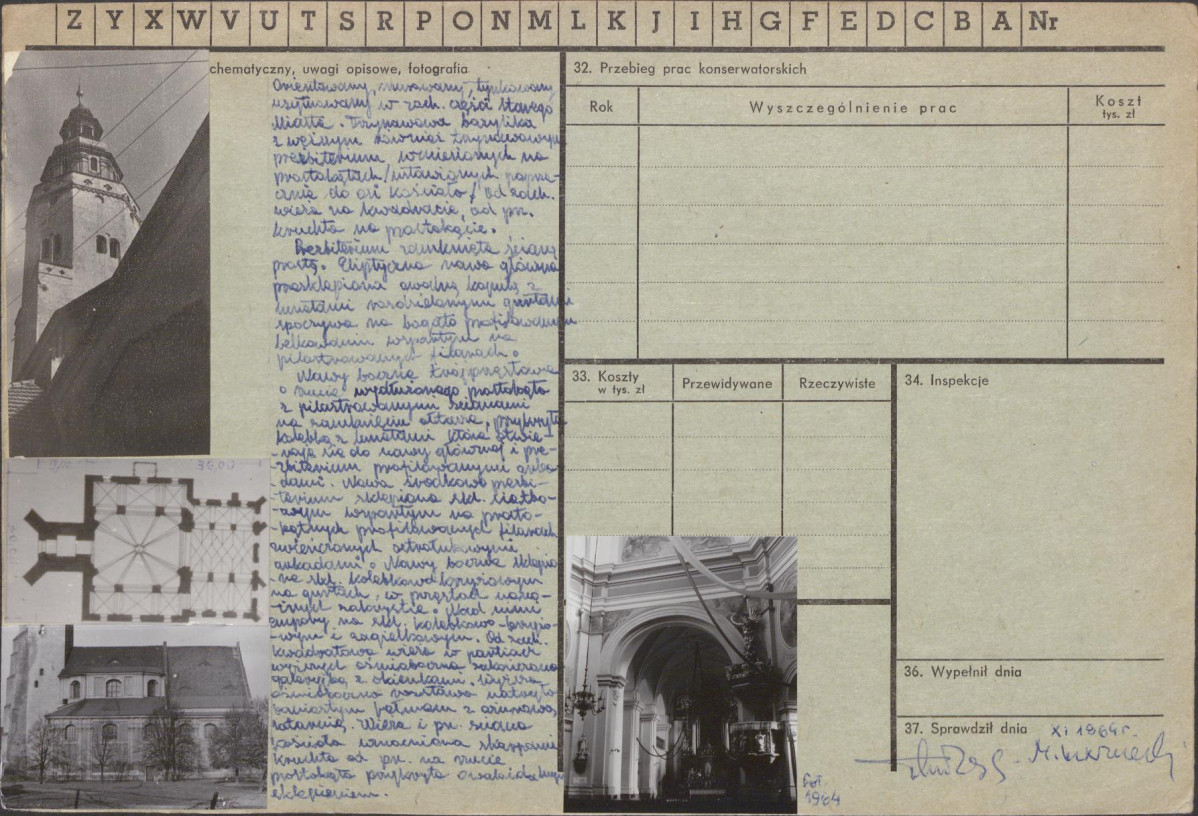 Z Y X W V U T S R P O N M L K J I H G F E D C B A Nr
chematyczny, uwagi opisowe, fotografia
Orientowany, murowany, tynkowany
usytuowany w zach. części Starego
Miasta. Trzynawowa bazylika
z węższym również trzynawowym
prezbiterium wzniesionych na
prostokątach /ustawionych poprze-
cznie do osi kościoła/ od zach.
wieża na kwadracie, od pn.
kruchta na prostokącie.
Prezbiterium zamknięte ścianą
prostą. Eliptyczna nawa główna
przesklepiona owalną kopułą z
lunetami rozdzielonymi gurtami
spoczywa na bogato profilowanym
belkowaniu wspartym na
pilastrowanych filarach.
Nawy boczne trójprzęsłowe
o rzucie wydłużonego prostokąta
z pilastrowanymi ścianami
na zamknięciu ołtarze, przykryte
kolebką z lunetami które otwie-
-rają się do nawy głównej i pre-
-zbiterium profilowanymi arka-
-dami. Nawa środkowa prezbi-
-terium sklepiona skl. siatko-
-wym wspartym na prosto-
-kątnych profilowanych filarach
zwieńczonych ostrołukowymi
arkadami. Nawy boczne sklepio-
-ne skl. kolebkowo krzyżowym
na gurtach, w przęsłach naroż-
-nych zakrystie. Nad nimi
empory na skl. kolebkowo-krzyżo-
-wym i żagielkowym. Od zach.
kwadratowa wieża w partiach
wyższych ośmioboczna zakończona
galeryjką z okienkami. Wyższa
ośmioboczna nadstawa nakryta
hełmem z ażurową
latarnią. Wieża i pn. ściana
kościoła wzmocniona skarpami
kruchta od pn. na rzucie
prostokąta przykryta
sklepieniem.
36,00
32. Przebieg prac konserwatorskich
Rok
Wyszczególnienie prac
Koszt
tys. zł
33. Koszty
w tys. zł
Przewidywane
Rzeczywiste
34. Inspekcje
36. Wypełnił dnia
37. Sprawdził dnia XI 1964 r.
fot.
1964